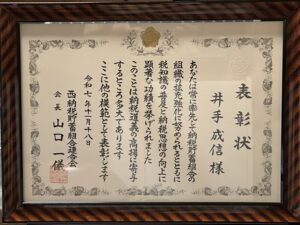 表彰状
井手成信様
あなたは常に率先して納税貯蓄組合の
組織の拡充強化に努められるとともに
税知識の普及と納税思想の向上に
顕著な功績を挙げられました
このことは納税道義の高揚に寄与
するところ多大であります
ここに他の模範として表彰します
令和七年十一月十八日
西納税貯蓄組合連合会
会長 山口